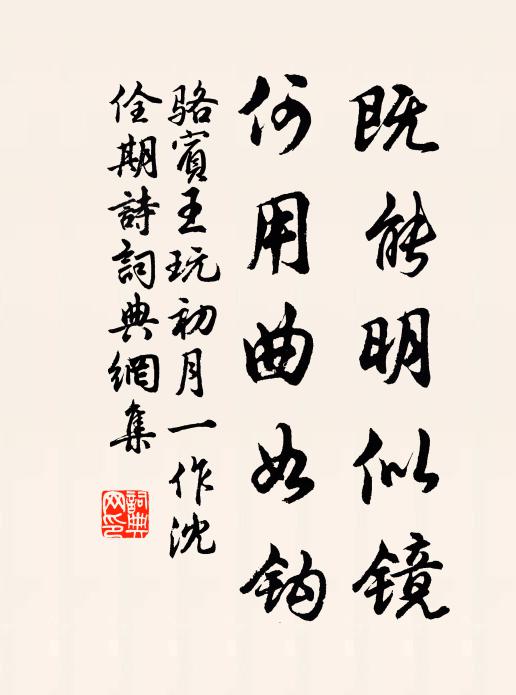 既能明似镜
何用曲如钩
骆賓王玩初月一作沈
佺期詩詞典網集
詞典
网印